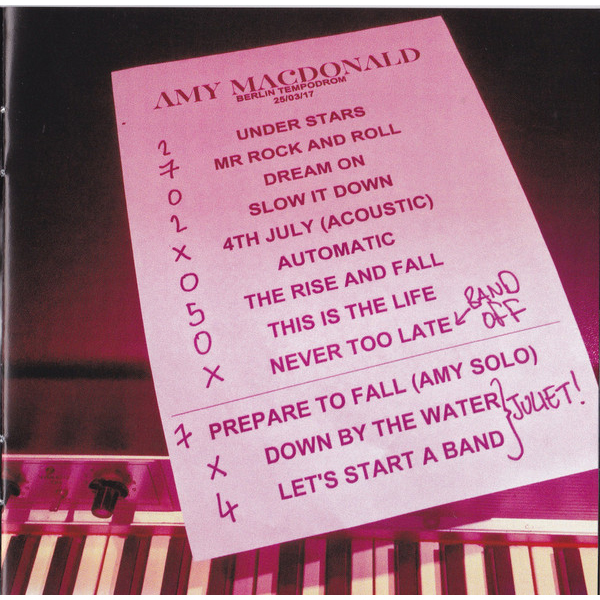 AMY MACDONALD
BERLIN TEMPODROM
25/03/17
2 UNDER STARS
7 MR ROCK AND ROLL
0 DREAM ON
2 SLOW IT DOWN
X 4TH JULY (ACOUSTIC)
0 AUTOMATIC
5 THE RISE AND FALL
0 THIS IS THE LIFE
X NEVER TOO LATE BAND OFF
7 PREPARE TO FALL (AMY SOLO)
X DOWN BY THE WATER JULIET!
4 LET'S START A BAND